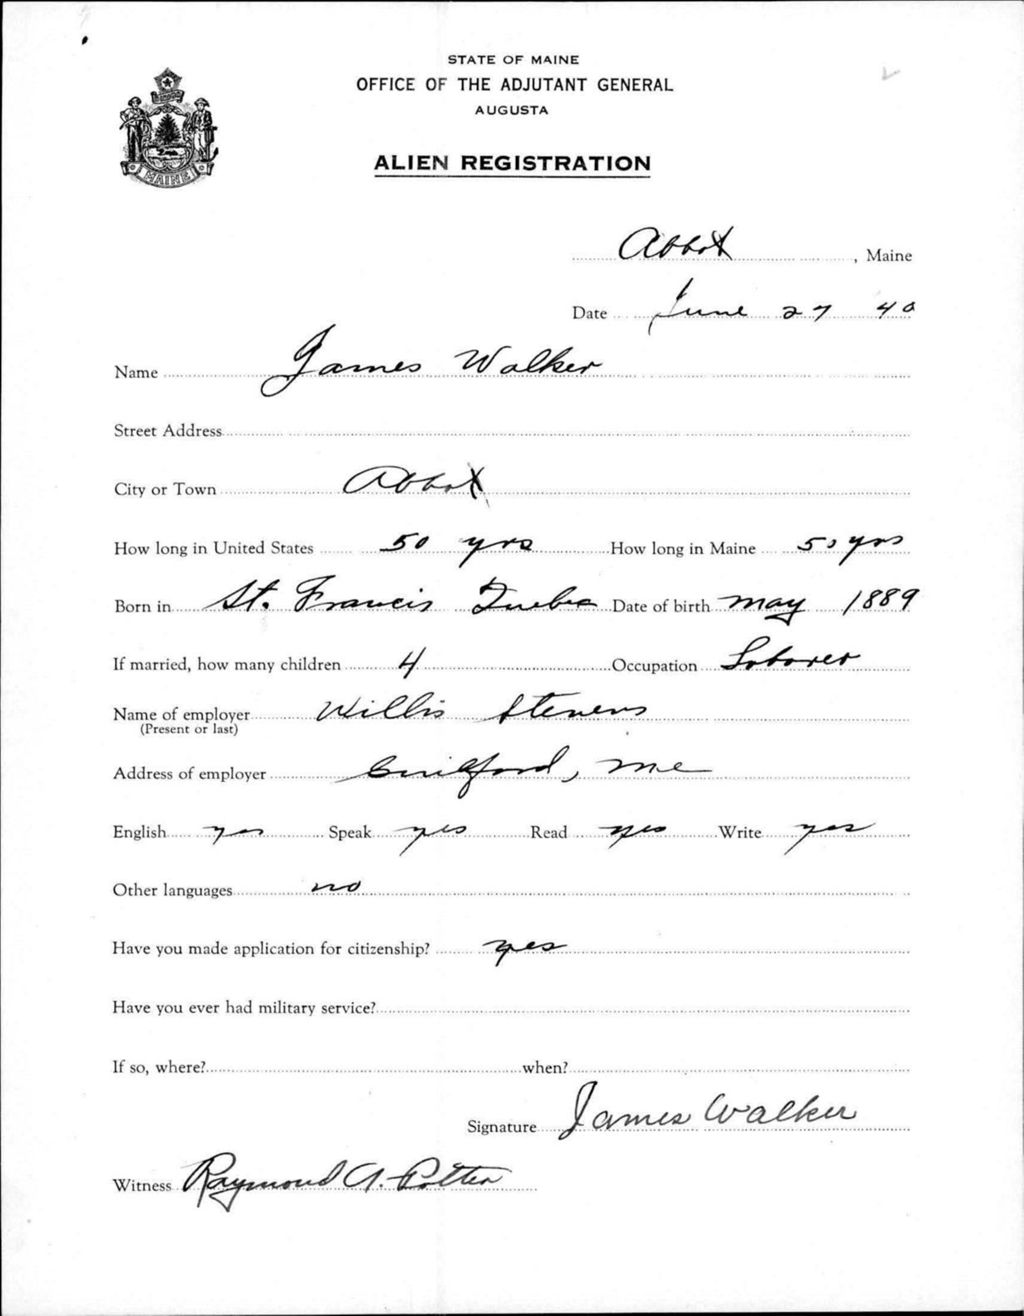 STATE OF MAINE
OFFICE OF THE ADJUTANT GENERAL
AUGUSTA
ALIEN REGISTRATION
MAINE
Abbot, Maine
Date June 27 40
Name James Walker
Street Address
City or Town Abbot
How long in United States 50 yrs How long in Maine 50 yrs
Born in St. Francis Quebec Date of birth May 1889
If married, how many children 4 Occupation Laborer
Name of employer Willis Stevens
(Present or last)
Address of employer Guilford, Me
English yes Speak yes Read yes Write yes
Other languages no
Have you made application for citizenship? yes
Have you ever had military service?
If so, where? when?
Signature James Walker
Witness Raymond A. Potter